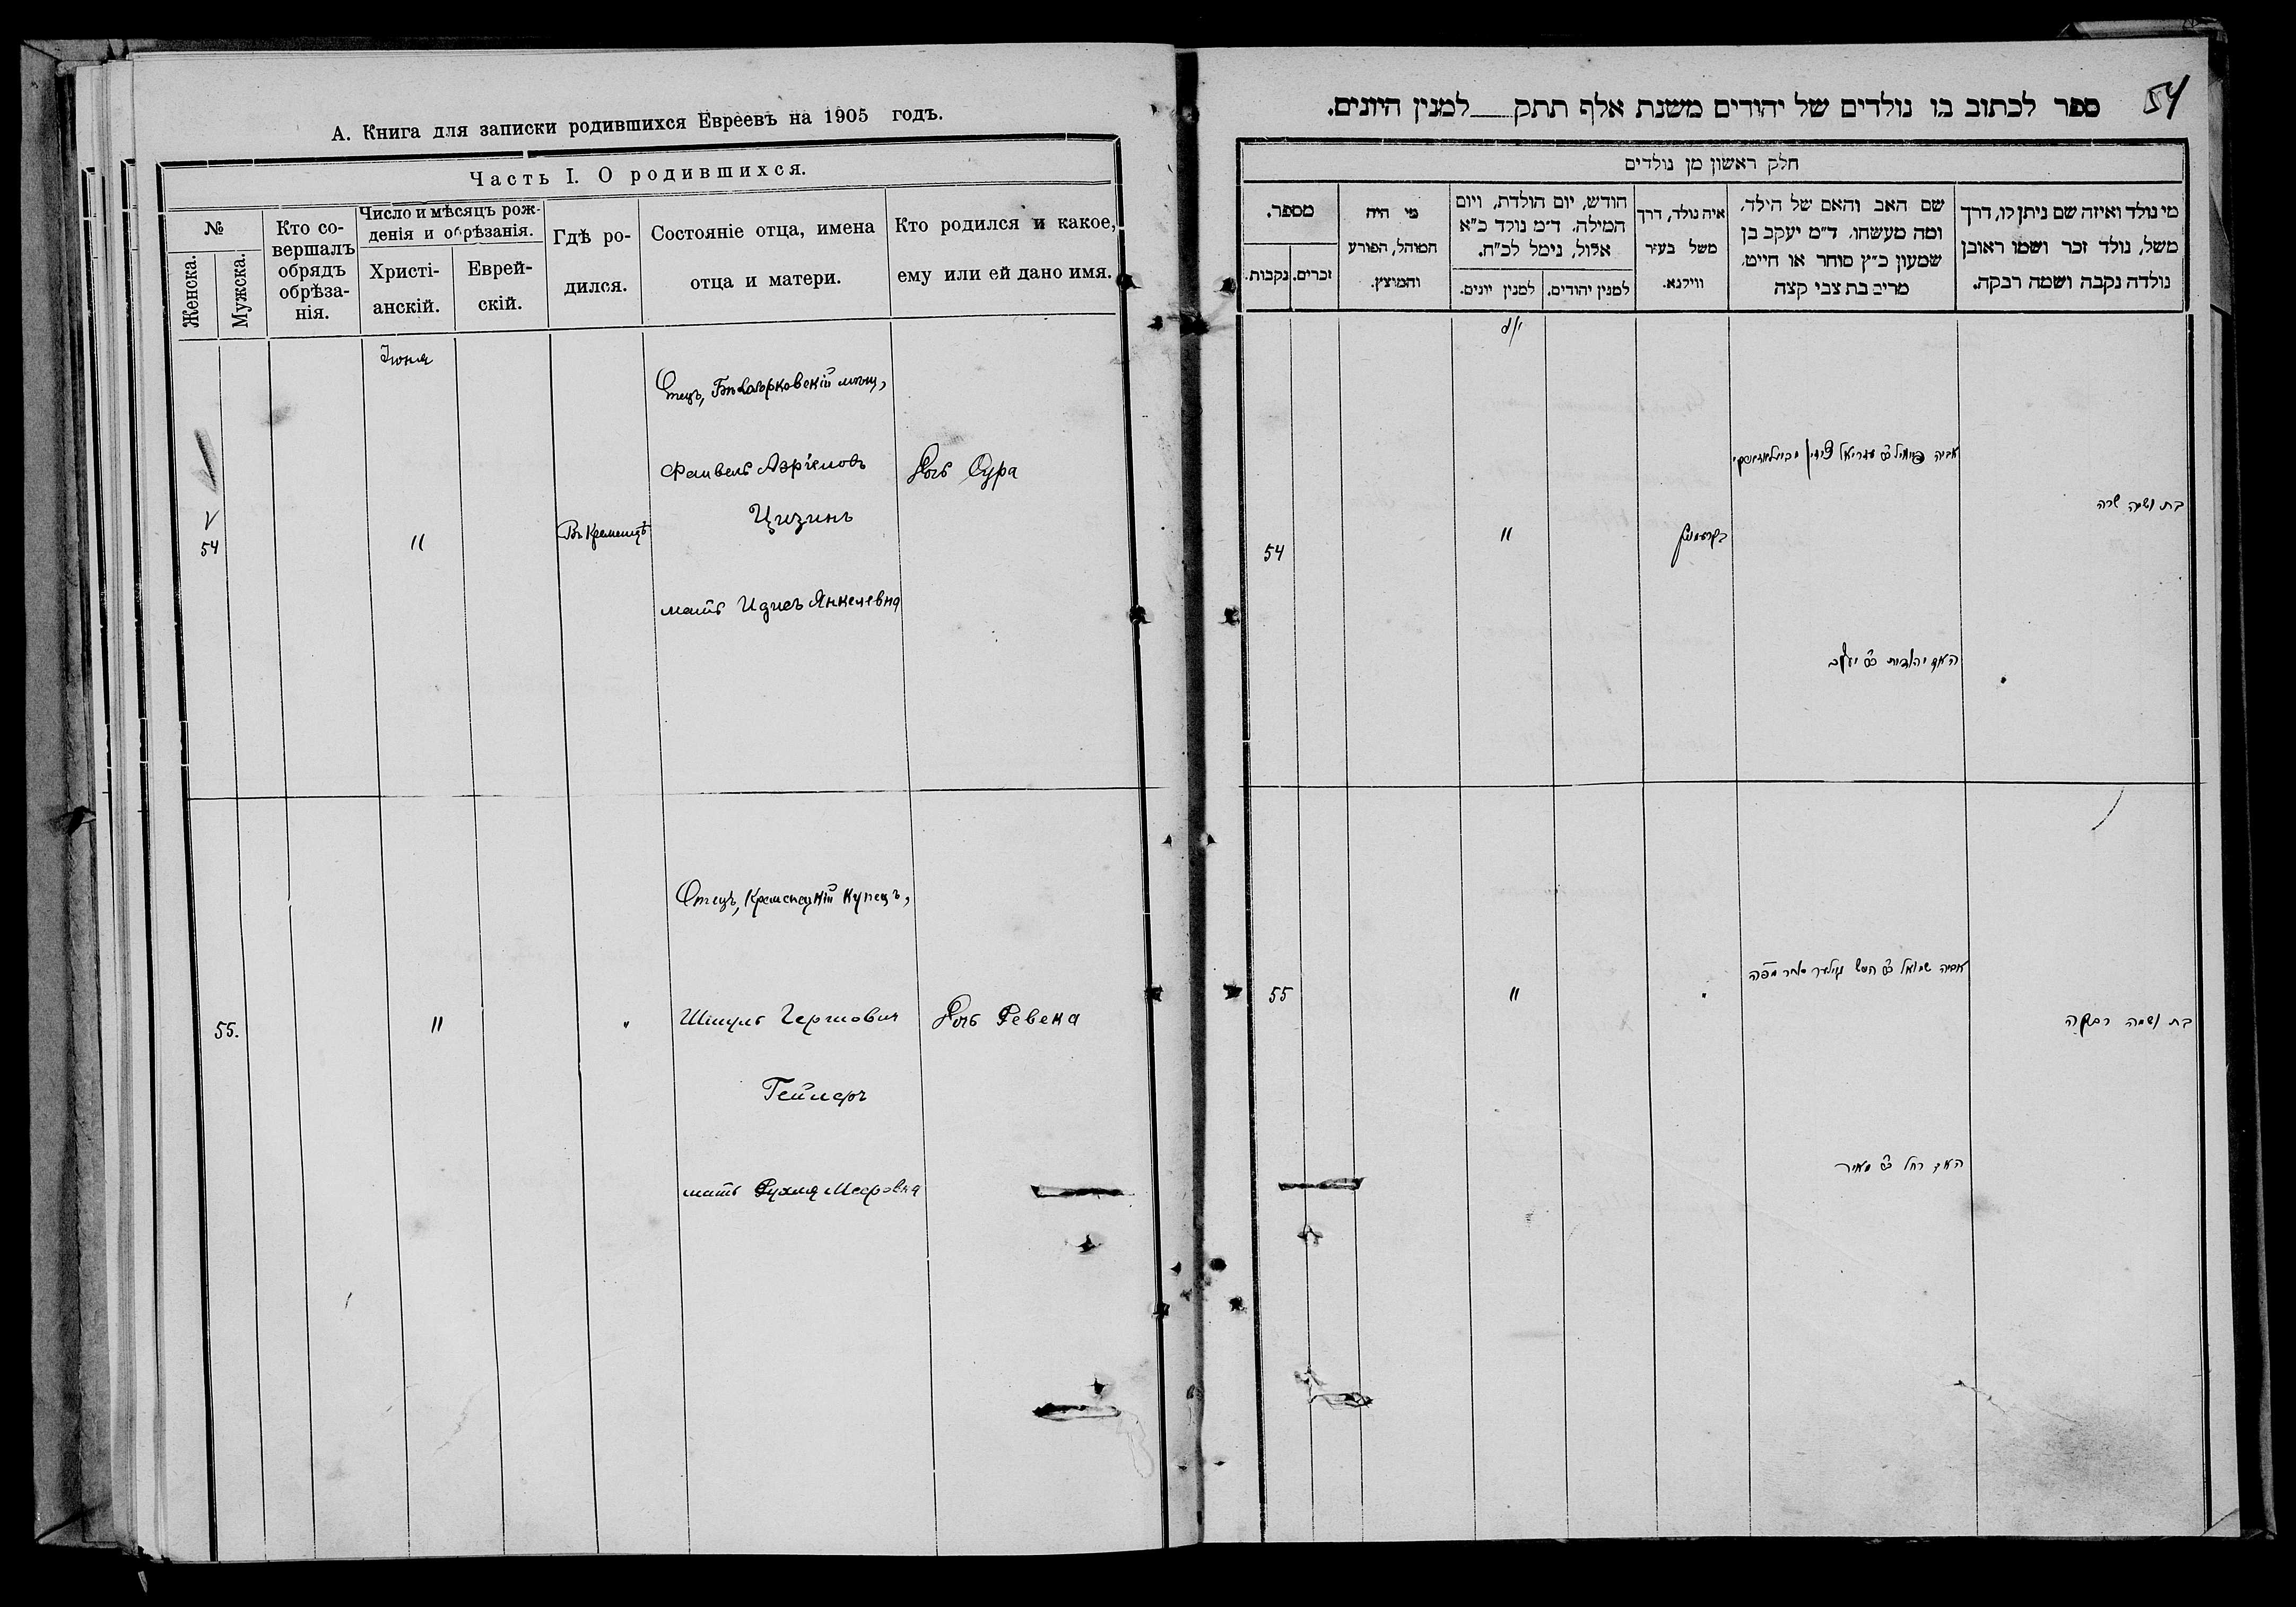 А. Книга для записки родившихся Евреевъ на 1905 годъ.
Часть I. О родившихся.
№
Женска.
Мужска.
Кто со-
вершалъ
обрядъ
обрѣза-
нія.
Число и мѣсяцъ рож-
денія и обрѣзанія.
Христі-
анскій.
Еврей-
скій.
Гдѣ ро-
дился.
Состояніе отца, имена
отца и матери.
Кто родился и какое,
ему или ей дано имя.
Іюня
Отецъ,
Файвель
Цизинъ
Дочь Сура
54
"
Въ Кременцѣ
мать Янкелевна
Отецъ, Кременецкій Купецъ,
55.
"
"
Гершовичъ
Дочь Ревека
Гейлеръ
мать Рухля Мееровна
54
ספר לכתוב בו נולדים של יהודים משנת אלף תתק___למנין היונים.
חלק ראשון מן נולדים
מי נולד ואיזה שם ניתן לו, דרך
משל, נולד זכר ושמו ראובן
נולדה נקבה ושמה רבקה.
שם האב והאם של הילד,
ומה מעשהו. ד״מ יעקב בן
שמעון כ״ץ סוחר או חייט,
מרים בת צבי קצה
איה נולד, דרך
משל בעיר
ווילנא.
חודש, יום הולדת, ויום
המילה. ד״מ נולד כ״א
אלול, נימל לכ״ח.
למנין יהודים.
למנין יונים.
מי היה
המוהל, הפורע
והמוצץ.
מספר.
זכרים.
נקבות.
בת ושמה שרה
"
54
האם יהודית יעקב
55
"
"
בת ושמה רבקה
האם רחל מאיר